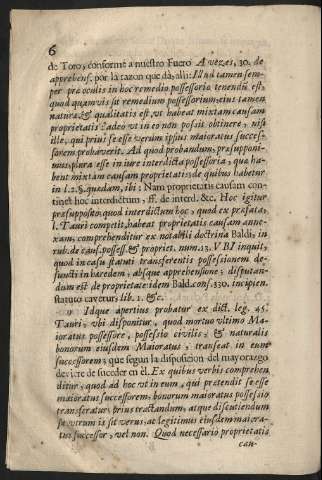 6
de Toro, conforme a nuestro Fuero A vezes, 30. de
apprehens. por la razon que dà, alli: Illud tamen sem-
per præ oculis in hoc remedio possessorio tenendũ est,
quod quamvis sit remedium possessorium, eius tamen
natura, & qualitatis est, vt habeat mixtam causam
proprietatis: adeò vt in eo non possit obtinere, nisi
ille, qui prius se esse verum ipsius maioratus succes-
sorem probaverit. Ad quod probandum, præsupponi-
mus, plura esse in iure interdicta possessoria, quæ ha-
bent mixtam causam proprietatis: de quibus habetur
in l. 2. §. quædam, ibi: Nam proprietatis causam con-
tinet hoc interdictum, ff. de interd. &c. Hoc igitur
præsupposito, quod interdictum hoc, quod ex præfata,
l. Tauri competit, habeat proprietatis causam anne-
xam, comprehenditur ex notabili doctrina Baldi, in
rub. de caus. possess. & propriet. num. 13. VBI inquit,
quod in casu statuti transferentis possessionem de-
functi in hæredem, absque apprehensione; disputan-
dum est de proprietate: idem Bald. cons. 330. incipien.
statuto cavetur, lib. 1. &c.
Idque apertius probatur ex dict. leg. 45.
Tauri, vbi disponitur, quod mortuo vltimo Ma-
ioratus possessore, possessio civilis, & naturalis
bonorum eiusdem Maioratus, transeat in eum
successorem; que segun la disposicion del mayorazgo
deviere de suceder en èl. Ex quibus verbis comprehen
ditur, quod ad hoc vt in eum, qui prætendit se esse
maioratus successorem, bonorum maioratus possessio
transferatur, prius tractandum, atque discutiendum
sit, vtrum is sit verus, ac legitimus eiusdem maiora-
tus successor, vel non. Quod necessario proprietatis
cau-